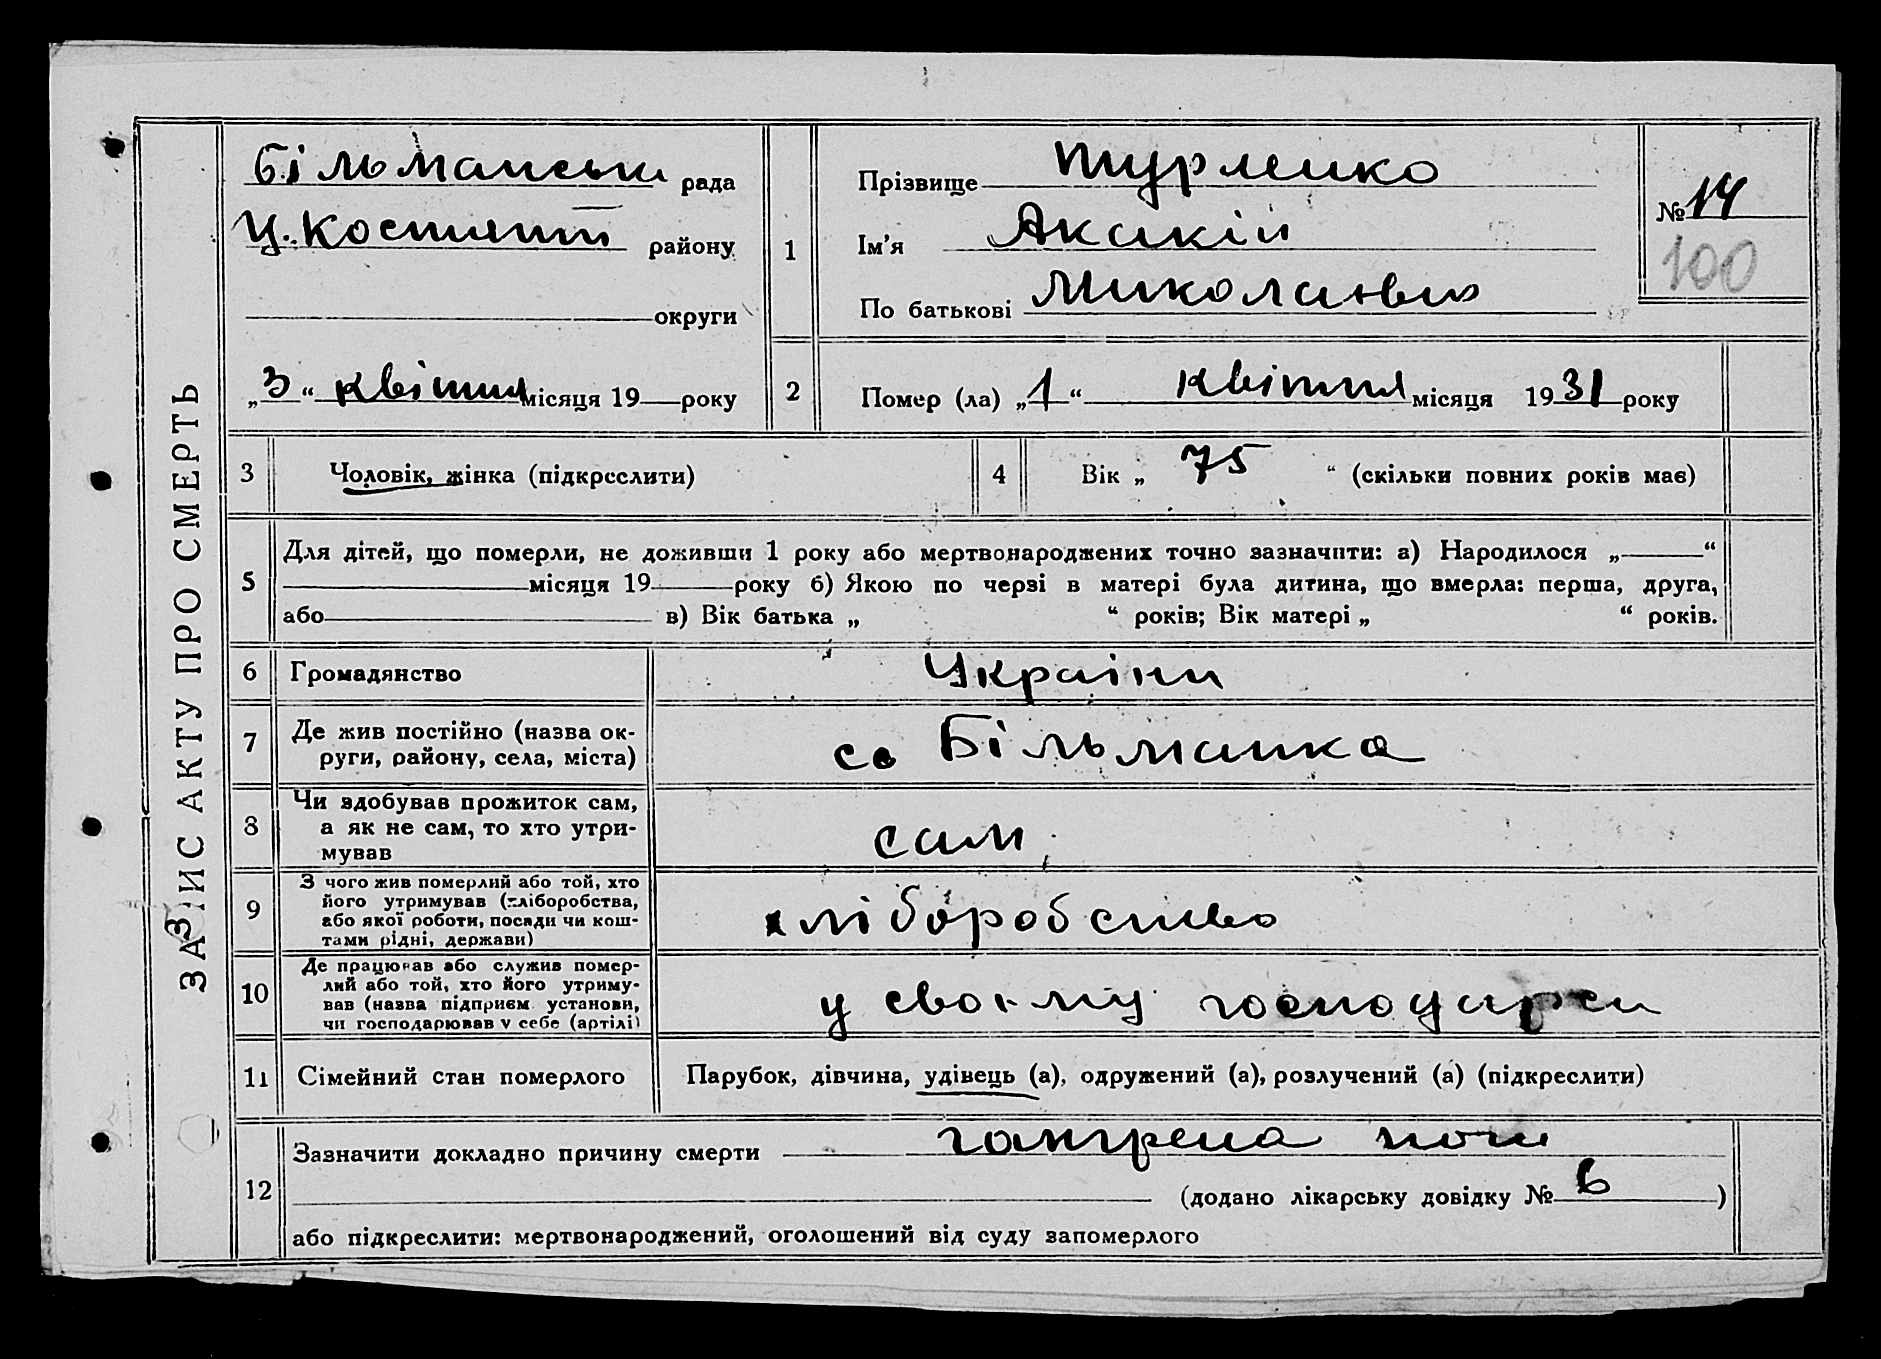 ЗАПИС АКТУ ПРО СМЕРТЬ
Більманська рада
Ц. Костянт району
округи
„3“ квітня місяця 19 року
1
Прізвище Турленко
Ім’я Акакій
По батькові Миколаевич
№ 14
100
2
Помер (ла) „1“ квітня місяця 1931 року
3 Чоловік, жінка (підкреслити)
4 Вік „ 75 “ (скільки повних років має)
5
Для дітей, що померли, не доживши 1 року або мертвонароджених точно зазначити: а) Народилося „ “
місяця 19 року б) Якою по черзі в матері була дитина, що вмерла: перша, друга,
або в) Вік батька „ “ років; Вік матері „ “ років.
6 Громадянство України
7 Де жив постійно (назва ок-
руги, району, села, міста)
с. Більманка
8 Чи здобував прожиток сам,
а як не сам, то хто утри-
мував
сам
9 З чого жив померлий або той, хто
його утримував (хліборобства,
або якої роботи, посади чи кош-
тами рідні, держави)
хліборобство
10 Де працював або служив помер-
лий або той, хто його утриму-
вав (назва підприєм. установи,
чи господарював у себе (артілі)
у своїму господарси
11 Сімейний стан померлого Парубок, дівчина, удівець (а), одружений (а), розлучений (а) (підкреслити)
12
Зазначити докладно причину смерти гангрена ноги
(додано лікарську довідку № 6 )
або підкреслити: мертвонароджений, оголошений від суду запомерлого